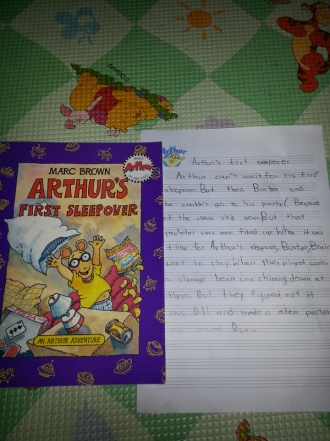 MARC BROWN
Arthur
ARTHUR'S
FIRST SLEEPOVER
AN ARTHUR ADVENTURE
Arthur
Arthur's first sleepover
Arthur can't wait for his first
sleepover. But then Buster said
he couldn't go to his party( Because
of the space ship news. But that
problem was soon fixed up. When it was
time for Arthur's sleepover, Buster, Brain
went to his. When they played cards
a strange beam was shining down at
them. But they figured out it
was D.W and made a alien poster
and scared D.W.